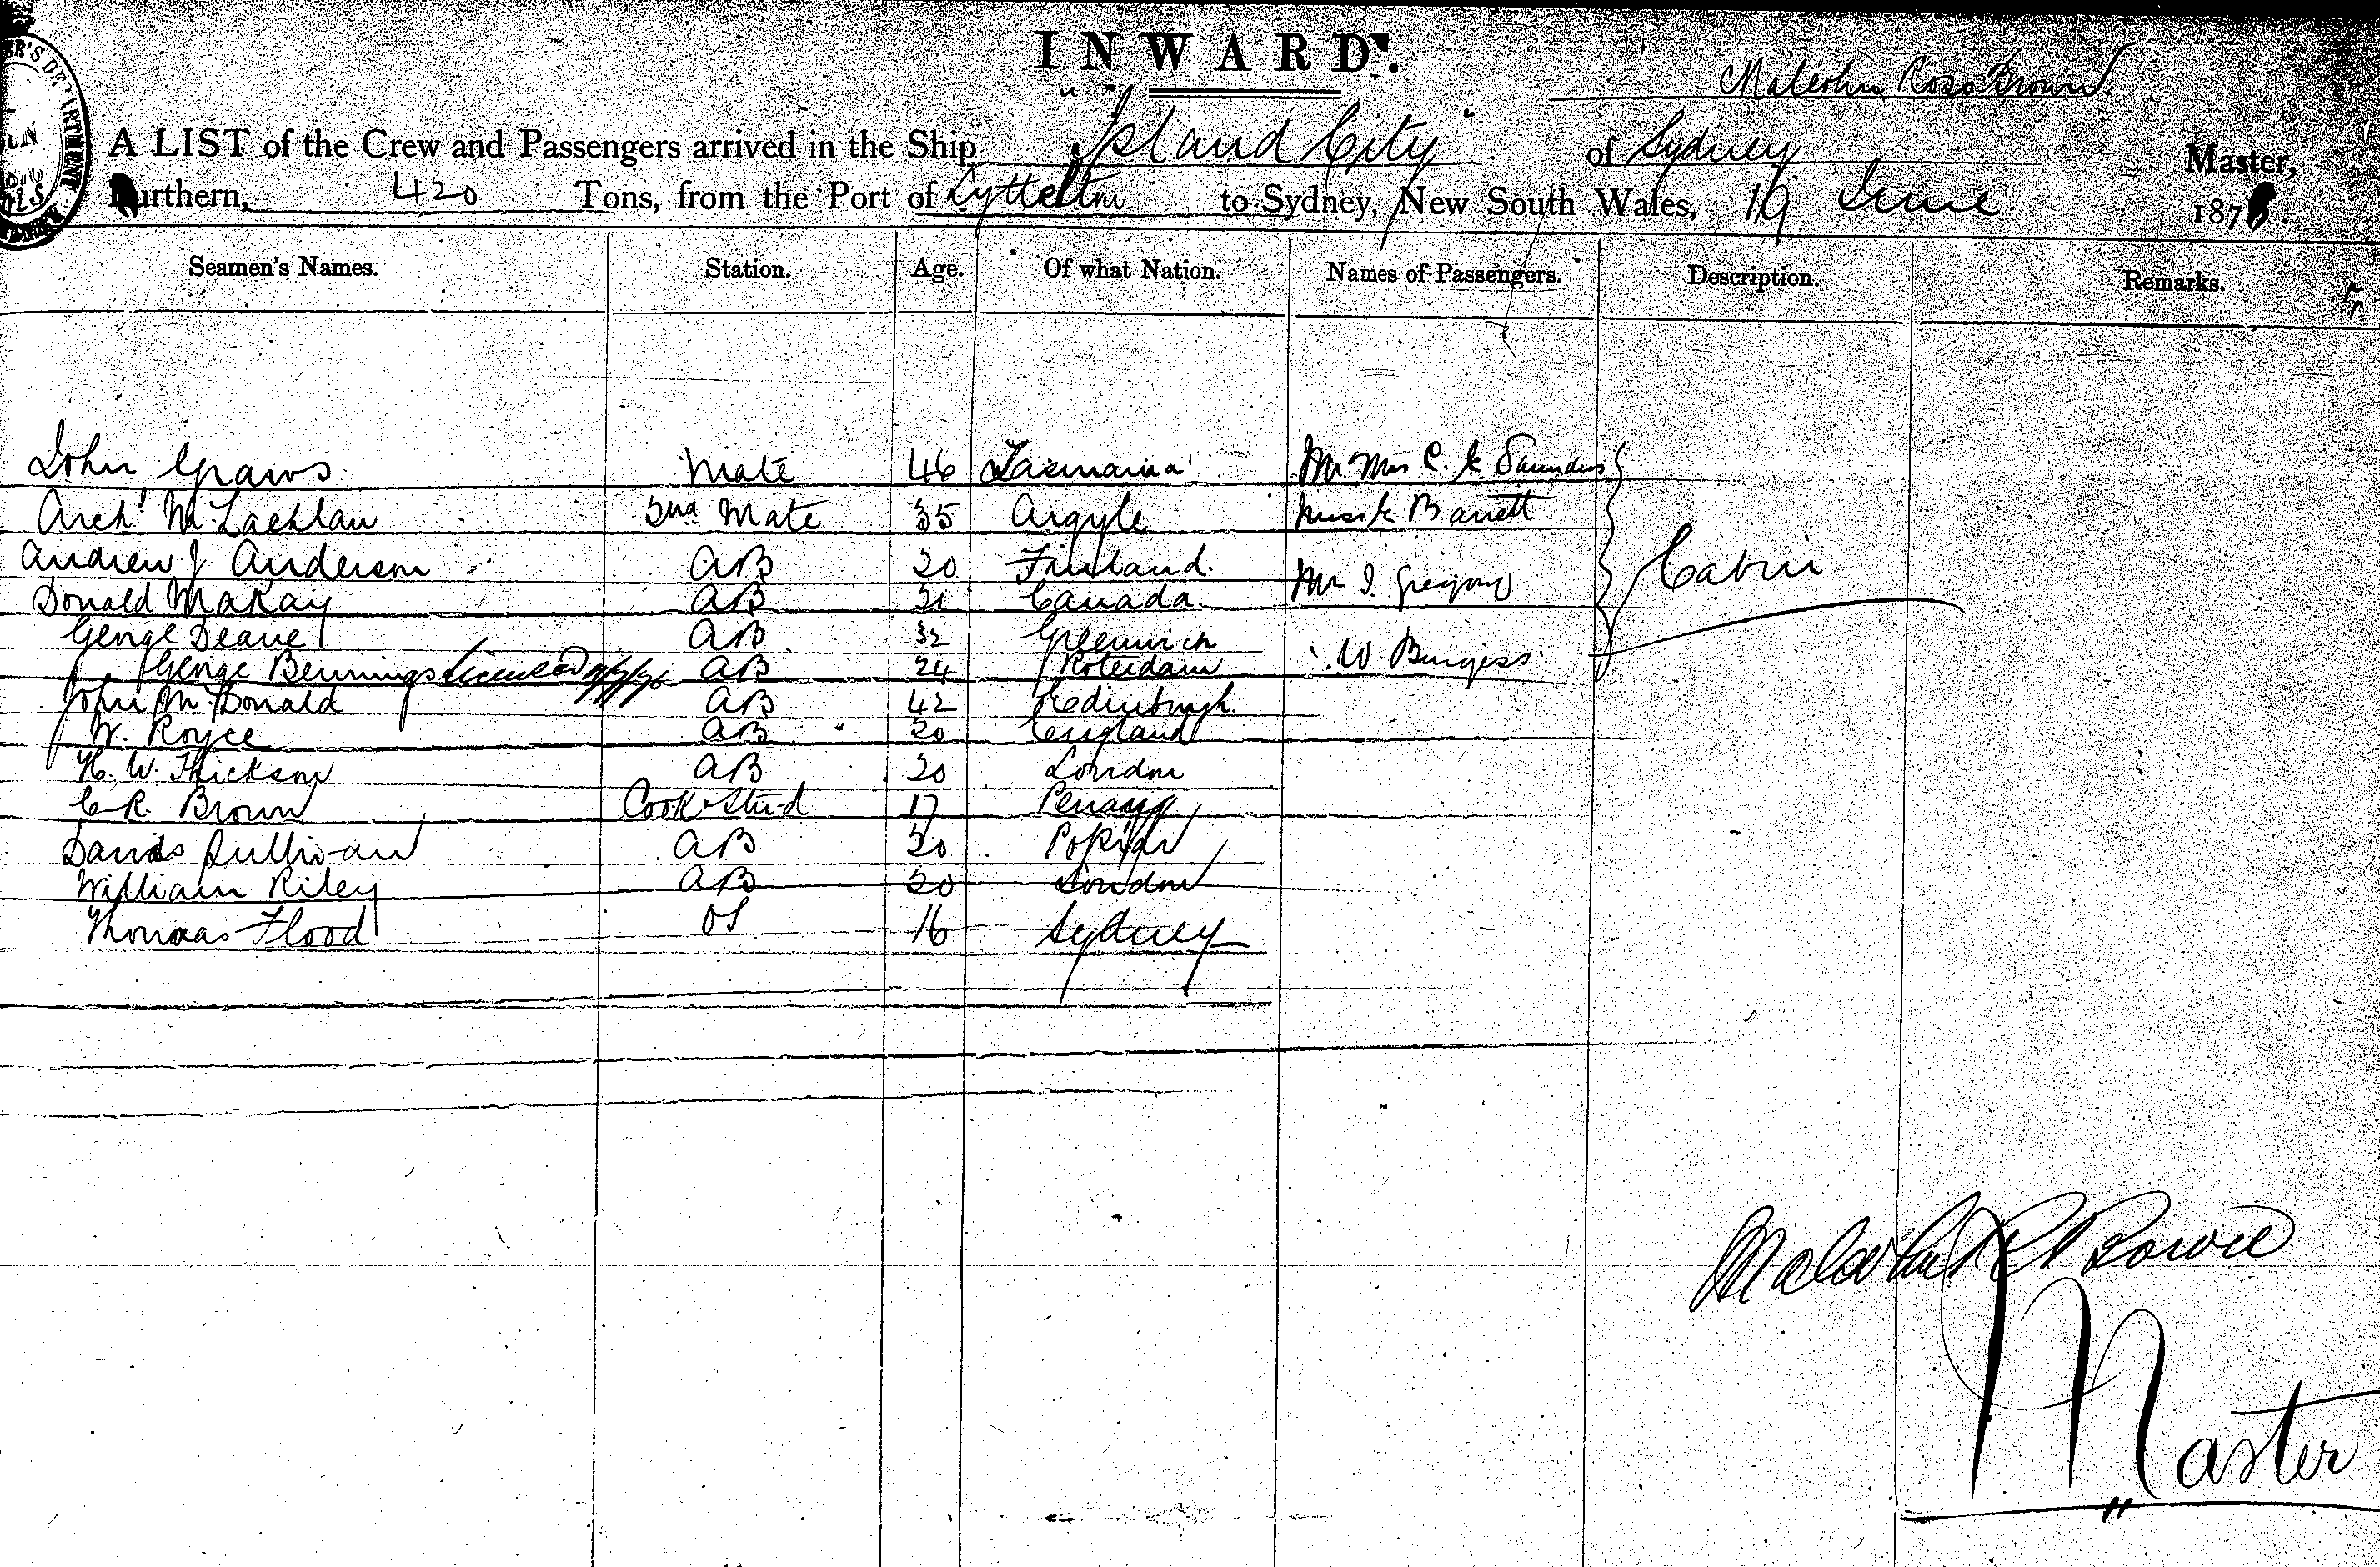 INWARD.
Malcolm Ross Brown
A LIST of the Crew and Passengers arrived in the Ship "Island City" of Sydney Master,
Burthern, 420 Tons, from the Port of Lyttelton to Sydney, New South Wales, 19 June 187
Seamen's Names. Station. Age. Of what Nation. Names of Passengers. Description. Remarks.
John Graws Mate 46 Tasmania Mr Mrs C. & Saunders
Archd McLachlan 2nd Mate 35 Argyle Barrett
Andrew J Anderson AB 20 Finland. Mr I. Gregory Cabin
Donald McKay AB 21 Canada
George Deane AB 32 Greenwich
George Bennings AB 24 Roterdam W. Burgess
John McDonald AB 42 Edinburgh.
W. Royce AB 20 England
H. W. Thickson AB 20 London
C R. Brown Cook & Stwd 17 Penang
Sullivan AB 20 Poplar
William Riley AB 20 London
Thomas Flood OS 16 Sydney
Malcolm R Bowie
Master